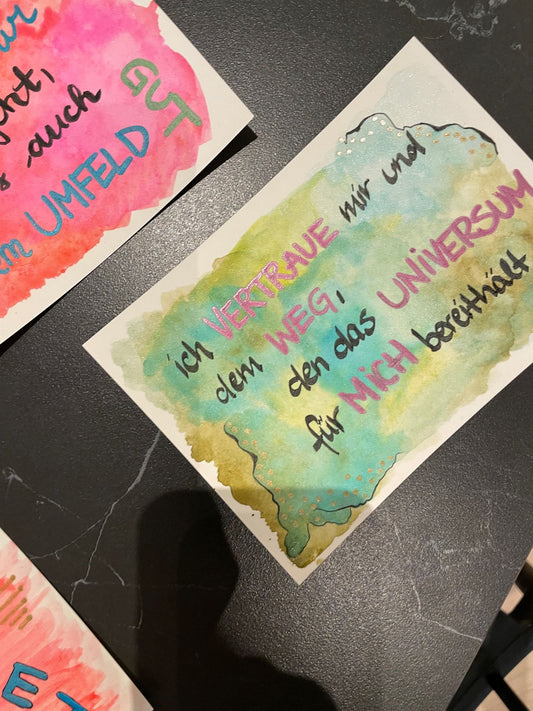 auch GUT
UMFELD
ich VERTRAUE mir und
dem WEG,
den das UNIVERSUM
für MICH bereitthält